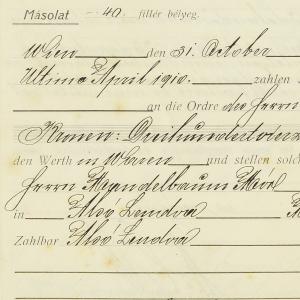 Másolat -40 fillér bélyeg.
Wien den 31. October
Ultimo April 1910. zahlen
an die Ordre des Herrn
Kronen: Dreihundertvierz
den Werth in Waren und stellen solch
Herrn Mandelbaum Mór
in Alsó Lendva
Zahlbar Alsó Lendva